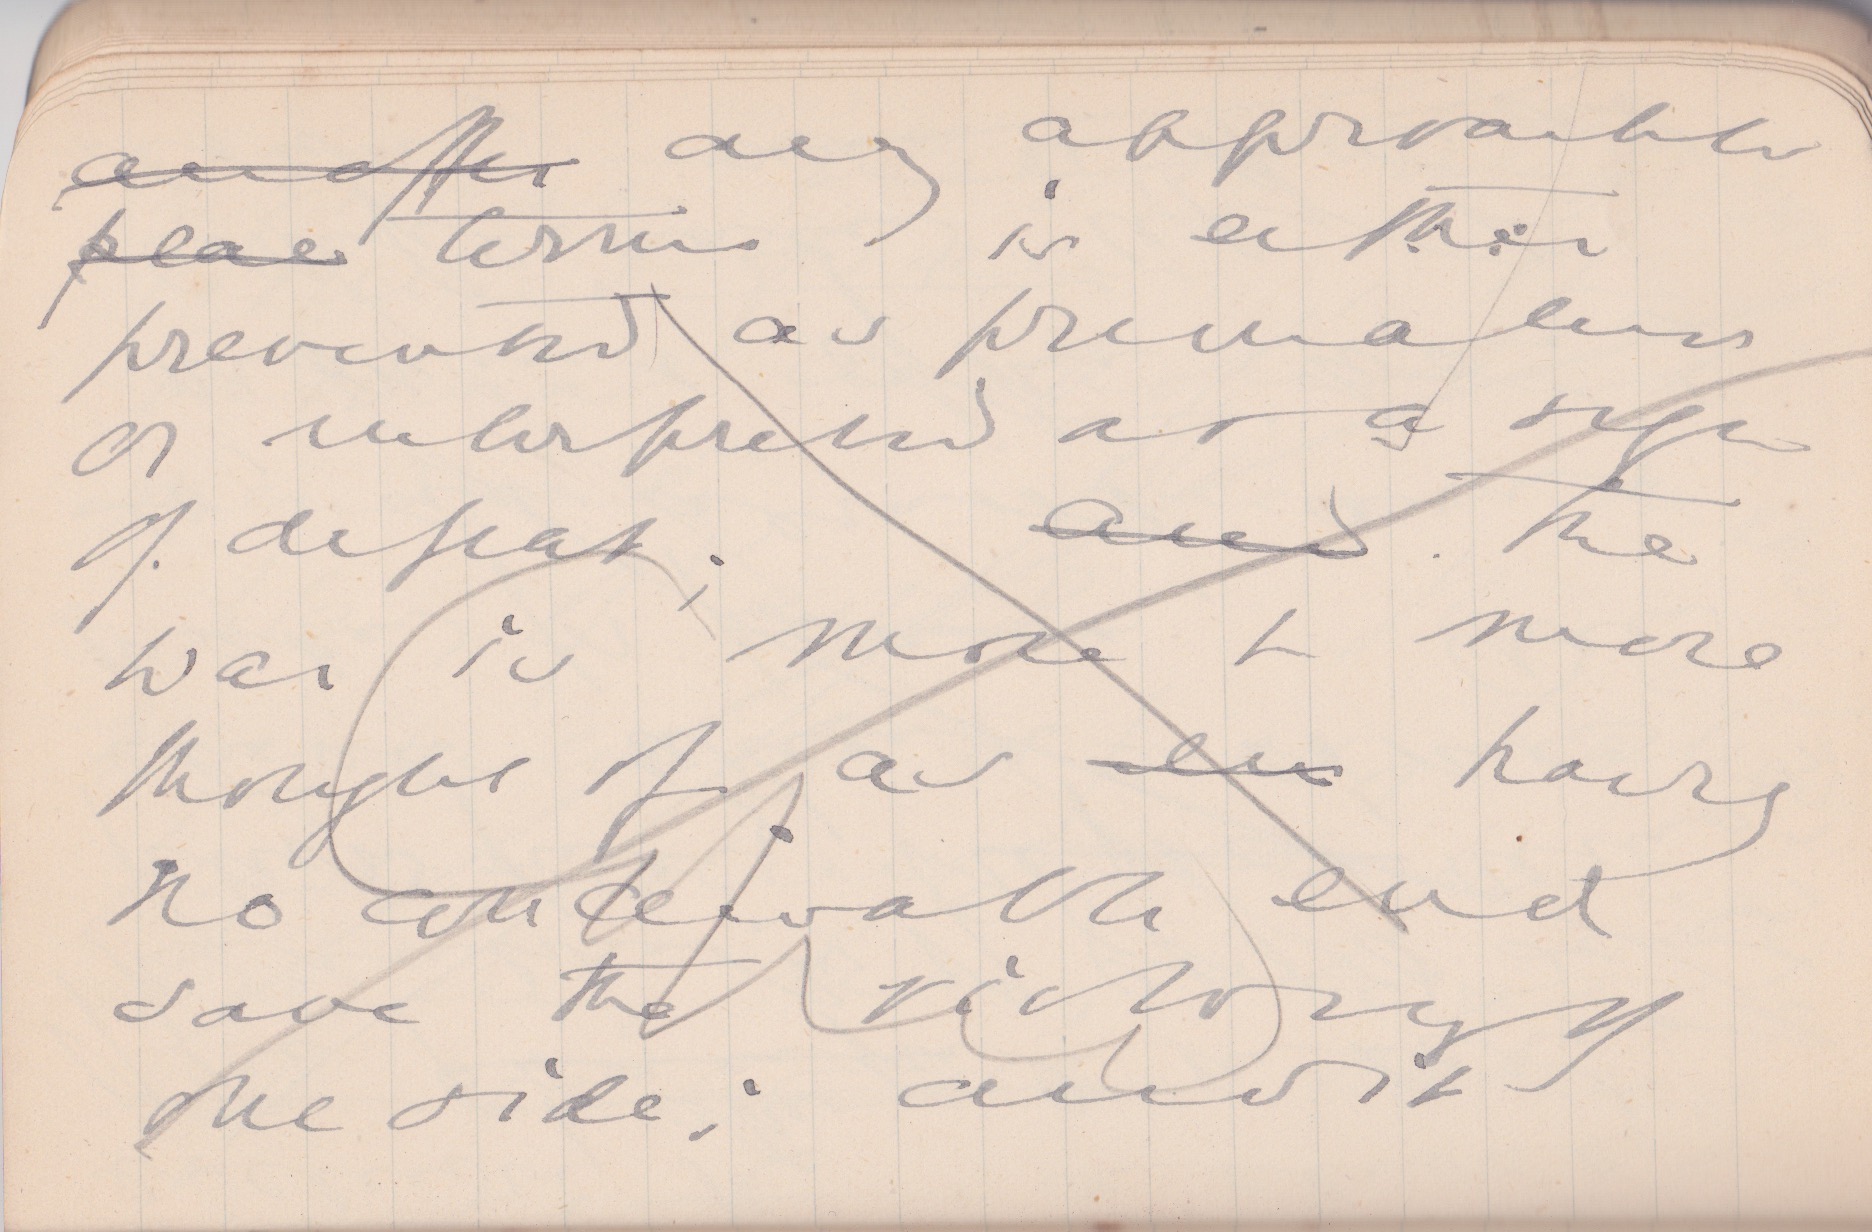 an offer any approachable
peace terms is either
prevented as premature
or interpreted as a sign
of defeat; and the
war is more & more
thought of as en having
no conceivable end
save the victory of
one side; and it